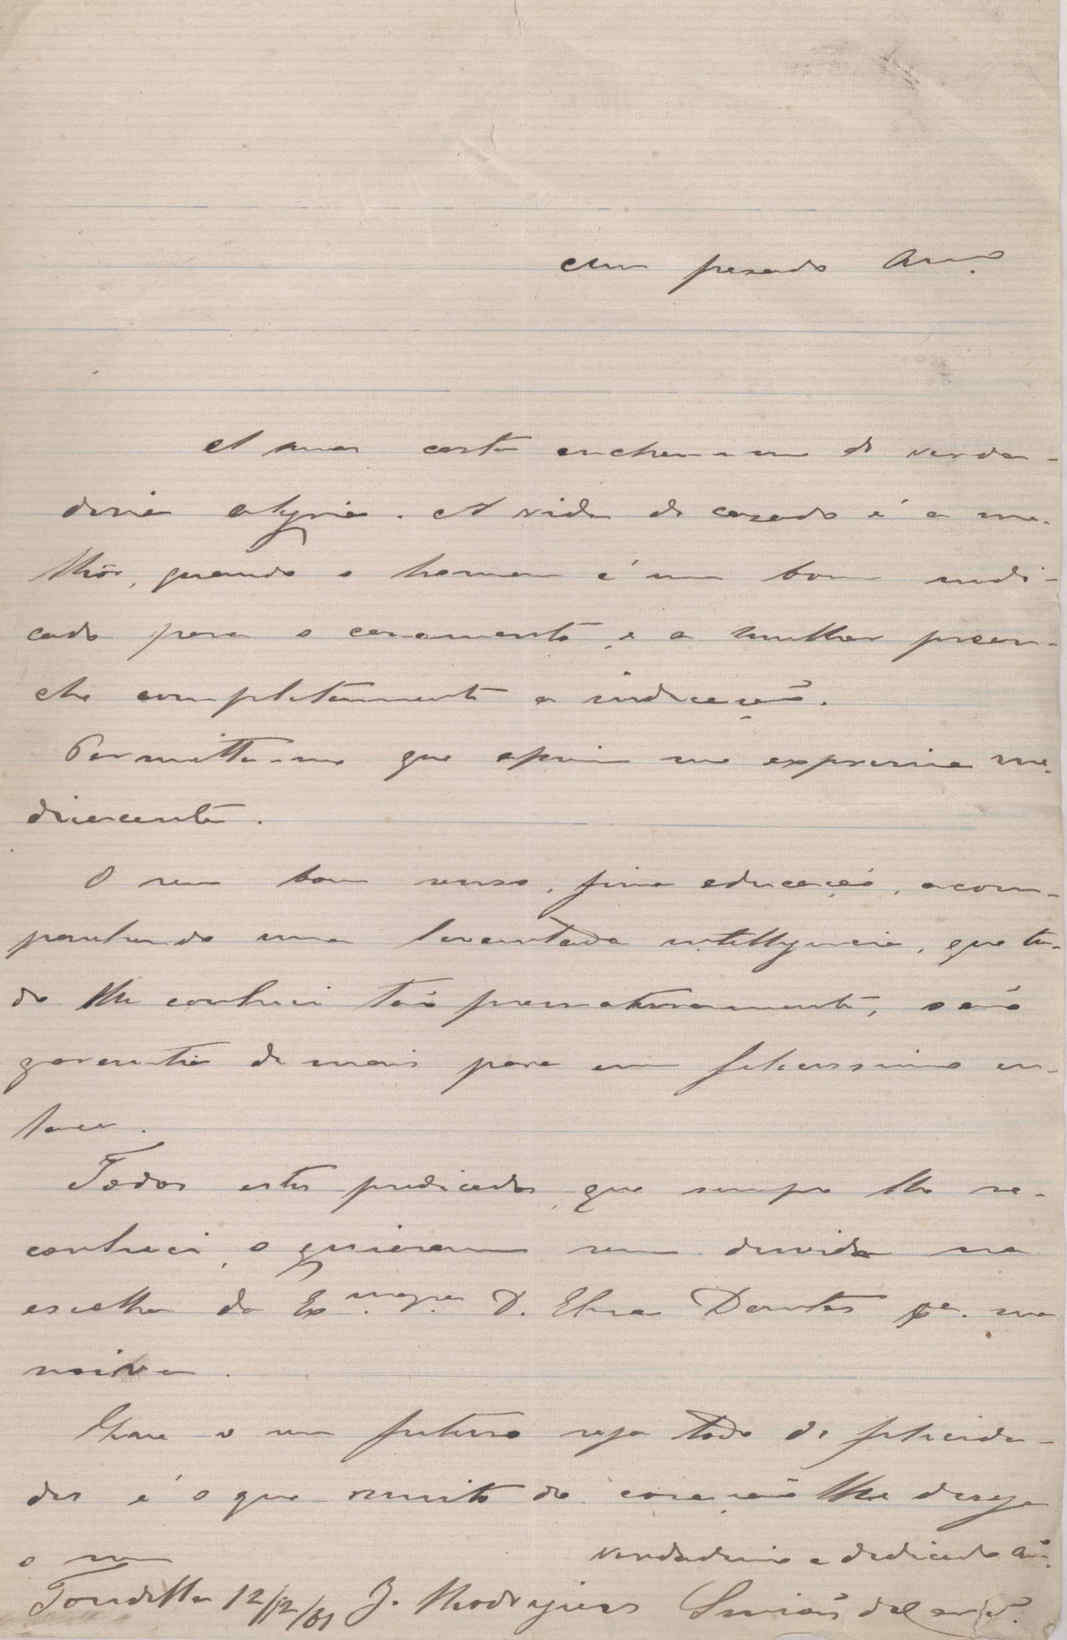 Meu presado Amº.
A sua carta encheu-me de verda-
deira alegria. A vida de casado é a me-
lhor, quando o homem é um bom indi-
cado para o casamento, e a mulher preen-
che completamente a indicação.
Permitta-me que assim me exprima me-
dicamente.
O seu bom senso, fina educação, acom-
panhando uma levantada intelligencia, que tu-
do lhe conheci tão prematuramente, são
garantia de mais para um felicissimo en-
lace.
Todos estes predicados, que sempre lhe re-
conheci, o guiaram sem duvida na
escolha da Exma. D. Elisa Dantas pa. sua
noiva.
Que o seu futuro seja todo de felicida-
des é o que muito do coração lhe deseja
o seu verdadeiro e dedicado Amº.
Tondella 12/12/01 J. Rodrigues Simões